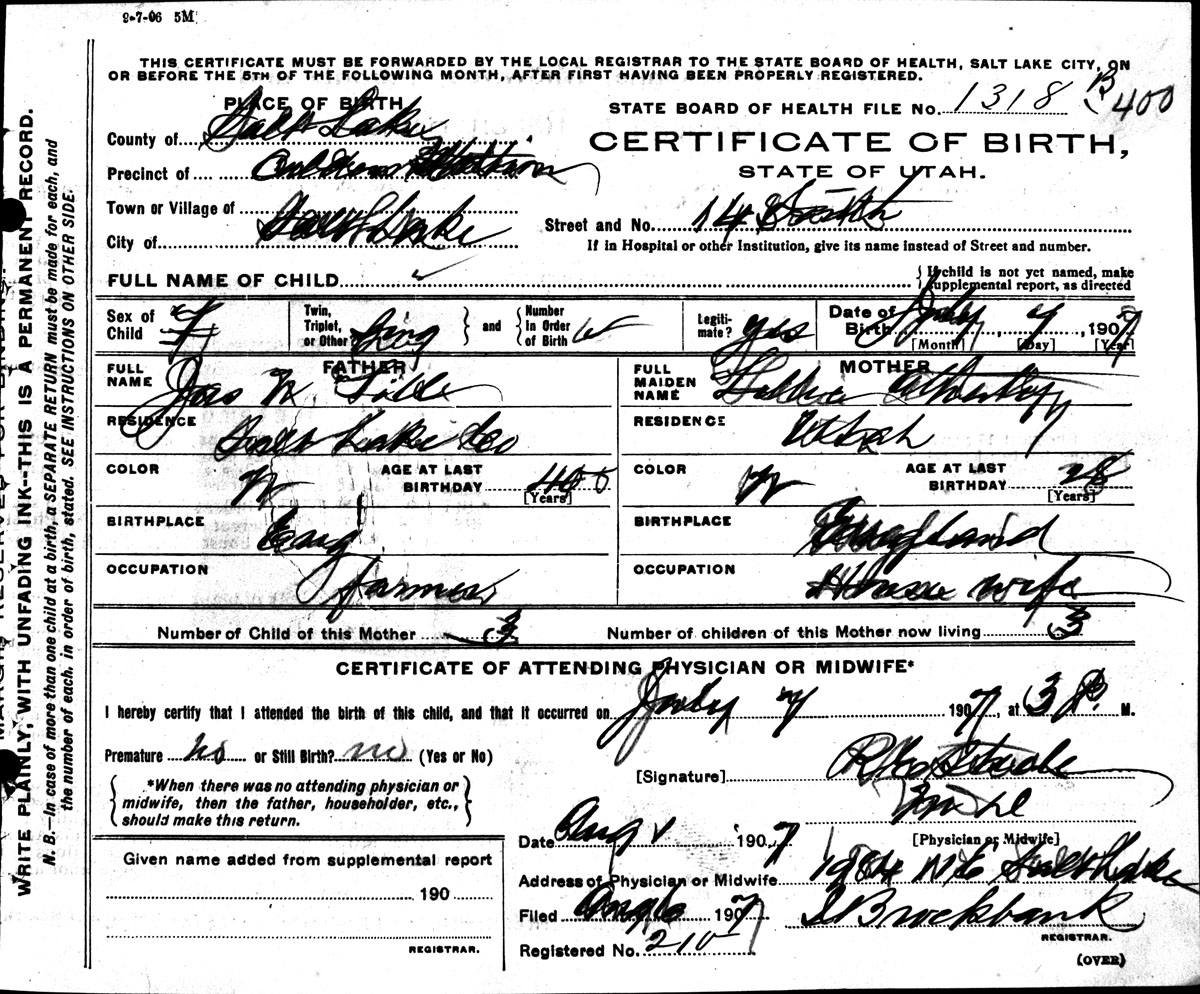 9-7-06 5M
THIS CERTIFICATE MUST BE FORWARDED BY THE LOCAL REGISTRAR TO THE STATE BOARD OF HEALTH, SALT LAKE CITY, ON
OR BEFORE THE 5TH OF THE FOLLOWING MONTH, AFTER FIRST HAVING BEEN PROPERLY REGISTERED.
PLACE OF BIRTH
STATE BOARD OF HEALTH FILE No. 1318 B 400
County of Salt Lake
CERTIFICATE OF BIRTH,
Precinct of
STATE OF UTAH.
Town or Village of
Street and No. 14
City of Salt Lake
If in Hospital or other Institution, give its name instead of Street and number.
FULL NAME OF CHILD
{ If child is not yet named, make
supplemental report, as directed
Sex of Child F
Twin, Triplet, or Other Sing } and { Number in Order of Birth
Legiti-mate? yes
Date of Birth July 7, 1907
[Month] [Day] [Year]
FATHER
MOTHER
FULL NAME Jas
FULL MAIDEN NAME
RESIDENCE Salt Lake Co
RESIDENCE Utah
COLOR W AGE AT LAST BIRTHDAY 40 [Years]
COLOR W AGE AT LAST BIRTHDAY 28 [Years]
BIRTHPLACE Eng
BIRTHPLACE England
OCCUPATION farmer
OCCUPATION House wife
Number of Child of this Mother 3 Number of children of this Mother now living 3
CERTIFICATE OF ATTENDING PHYSICIAN OR MIDWIFE*
I hereby certify that I attended the birth of this child, and that it occurred on July 7 1907, at 3 P. M.
Premature no or Still Birth? no (Yes or No)
[Signature]
*When there was no attending physician or
midwife, then the father, householder, etc.,
should make this return.
[Physician or Midwife]
Date Aug 1 1907
Given name added from supplemental report
Address of Physician or Midwife Salt Lake
190
Filed Aug 1907 Brockbank
REGISTRAR.
REGISTRAR.
Registered No. 210
(OVER)
MARGIN RESERVED FOR BINDING.
WRITE PLAINLY, WITH UNFADING INK--THIS IS A PERMANENT RECORD.
N. B.—In case of more than one child at a birth, a SEPARATE RETURN must be made for each, and
the number of each, in order of birth, stated. SEE INSTRUCTIONS ON OTHER SIDE.